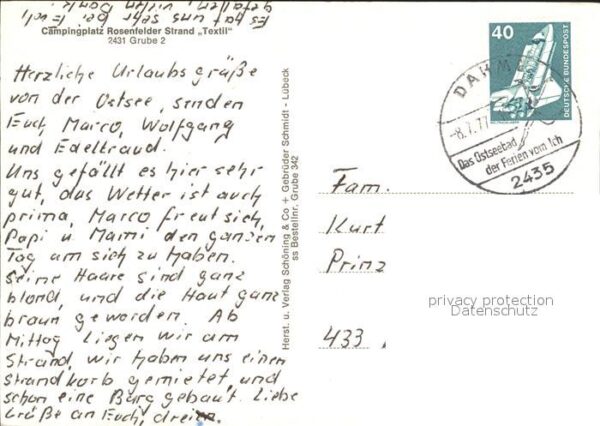 Es hat uns sehr bei Euch
gefallen, vielen Dank.
Campingplatz Rosenfelder Strand „Textil"
2431 Grube 2
Herzliche Urlaubsgrüße
von der Ostsee, senden
Euch, Marco, Wolfgang
und Edeltraud.
Uns gefällt es hier sehr
gut, das Wetter ist auch
prima, Marco freut sich,
Papi u. Mami den ganzen
Tag um sich zu haben.
Seine Haare sind ganz
blond und die Haut ganz
braun geworden. Ab
Mittag liegen wir am
Strand, wir haben uns einen
Strandkorb gemietet, und
schon eine Burg gebaut. Liebe
Grüße an Euch, dreien.
Herst. u. Verlag Schöning & Co + Gebrüder Schmidt - Lübeck
ss Bestellnr. Grube 342
40
DEUTSCHE BUNDESPOST
DAHME
-8.7.77
Das Ostseebad
der Ferien vom Ich
2435
Fam.
Kurt
Prinz
433.
privacy protection
Datenschutz